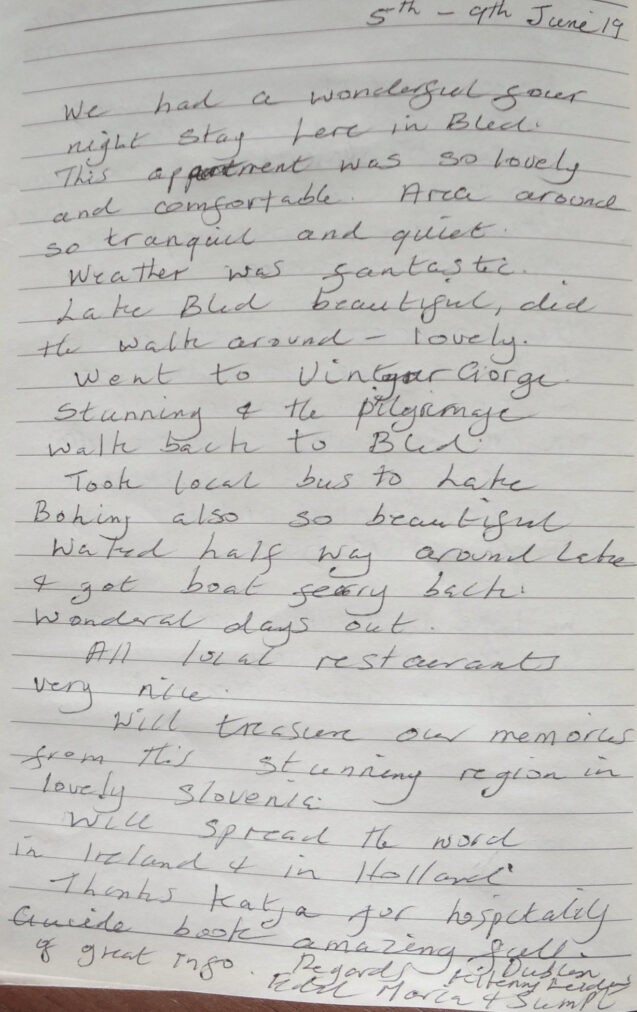 5th - 9th June 19
We had a wonderful four
night stay here in Bled.
This apartment was so lovely
and comfortable. Area around
so tranquil and quiet.
Weather was fantastic.
Lake Bled beautiful, did
the walk around - lovely.
Went to Vintgar Gorge.
Stunning & the pilgrimage
walk back to Bled.
Took local bus to Lake
Bohing also so beautiful
Walked half way around Lake
& got boat ferry back.
Wonderal days out.
All local restaurants
very nice.
Will treasure our memories
from this stunning region in
lovely Slovenia.
Will spread the word
in Ireland & in Holland
Thanks Katja for hospitality
Guide book amazing full
of great info. Regards Dublin
Maria &